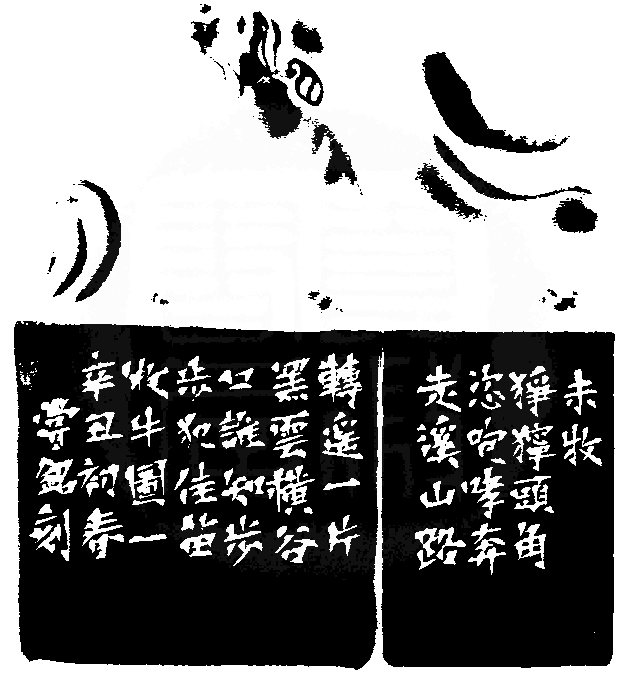 未牧
猙獰頭角
恣咆哮奔
走溪山路
轉遙一片
黑雲橫谷
口誰知步
步犯佳苗
牧牛圖一
辛丑初春
銘刻